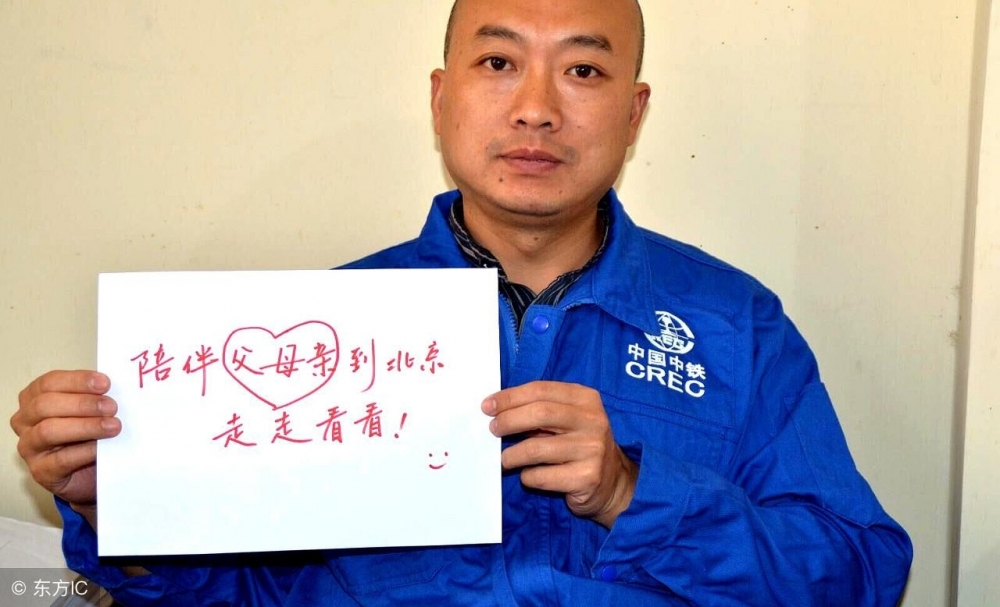 陪伴父母亲到北京
走走看看！
中国中铁
CREC
© 东方IC